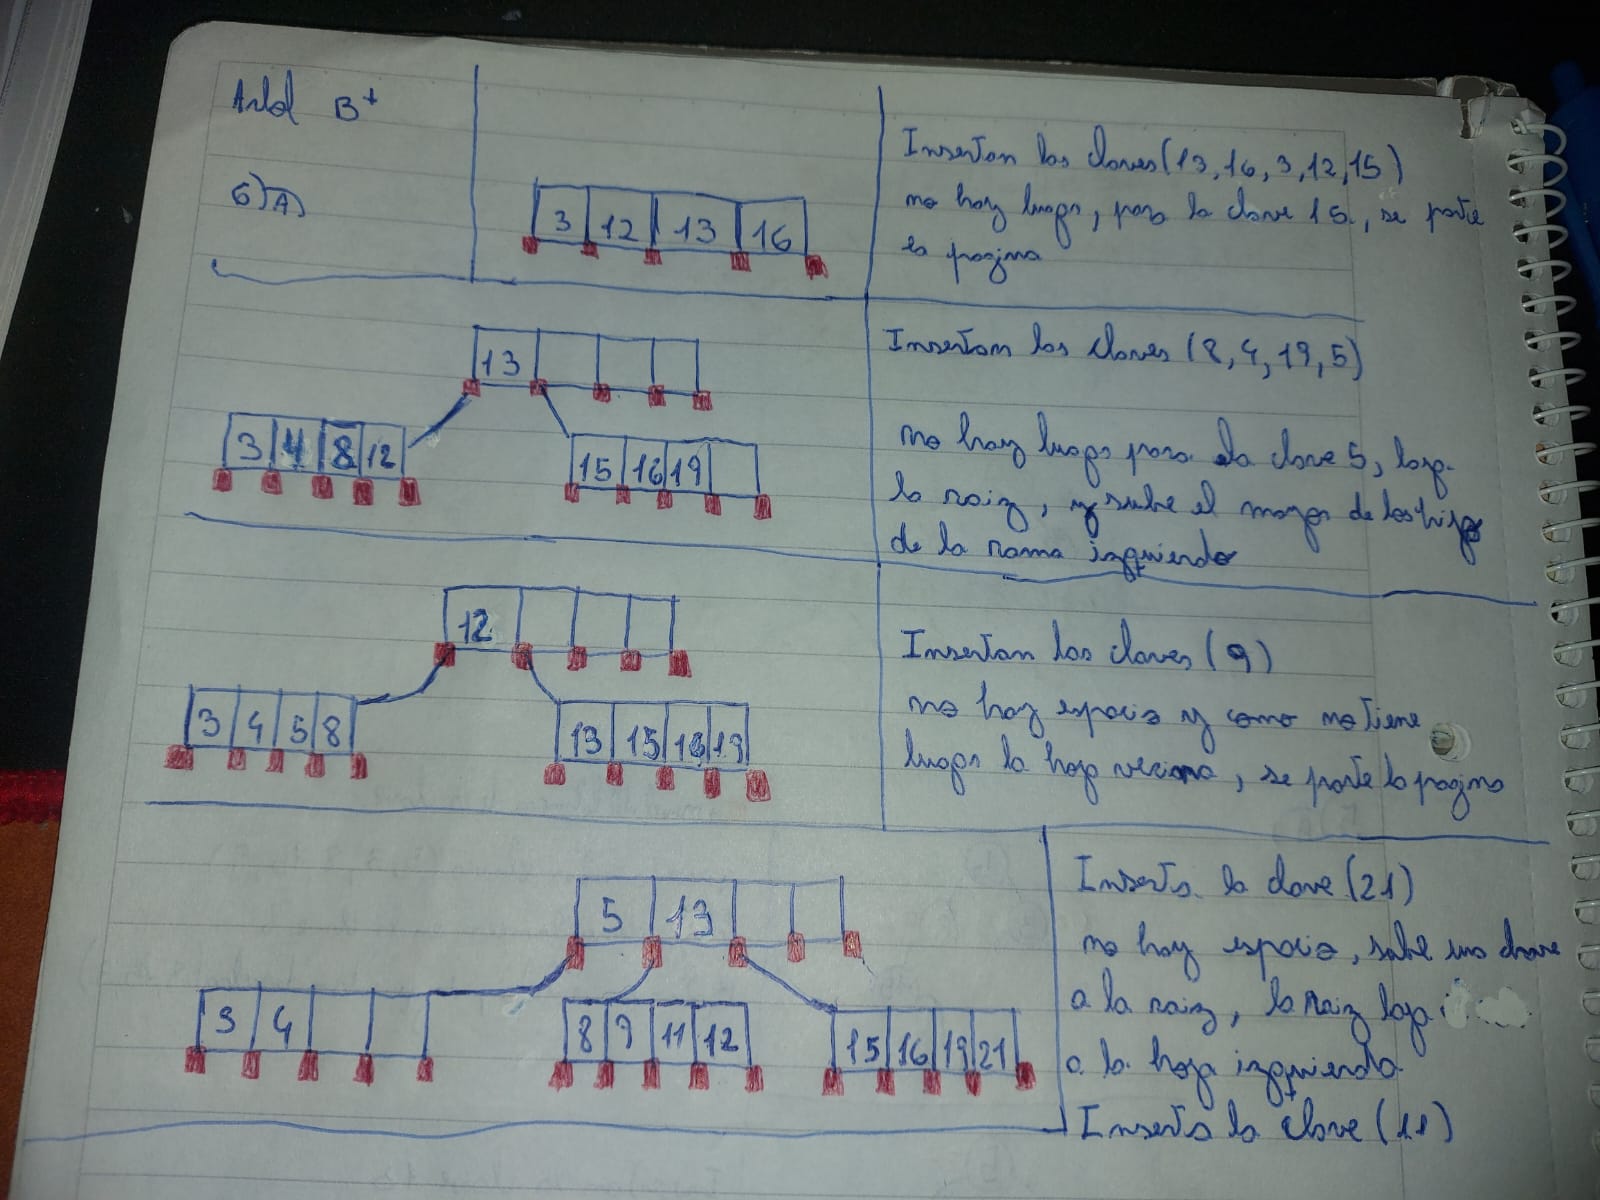 Arbol B+
6)A)
3 12 13 16
Insertan las claves (13, 16, 3, 12, 15)
no hay lugar, para la clave 15, se parte
la pagina
13
3 4 8 12
15 16 19
Insertan las claves (8, 4, 19, 5)
no hay lugar para la clave 5, baja
la raiz, y sube el mayor de los hijos
de la rama izquierda
12
3 4 5 8
13 15 16 19
Insertan las claves (9)
no hay espacio y como no tiene
lugar la hoja vecina, se parte la pagina
5 13
3 4
8 9 11 12
15 16 19 21
Inserta la clave (21)
no hay espacio, sube una clave
a la raiz, la raiz baja
a la hoja izquierda
Inserta la clave (11)